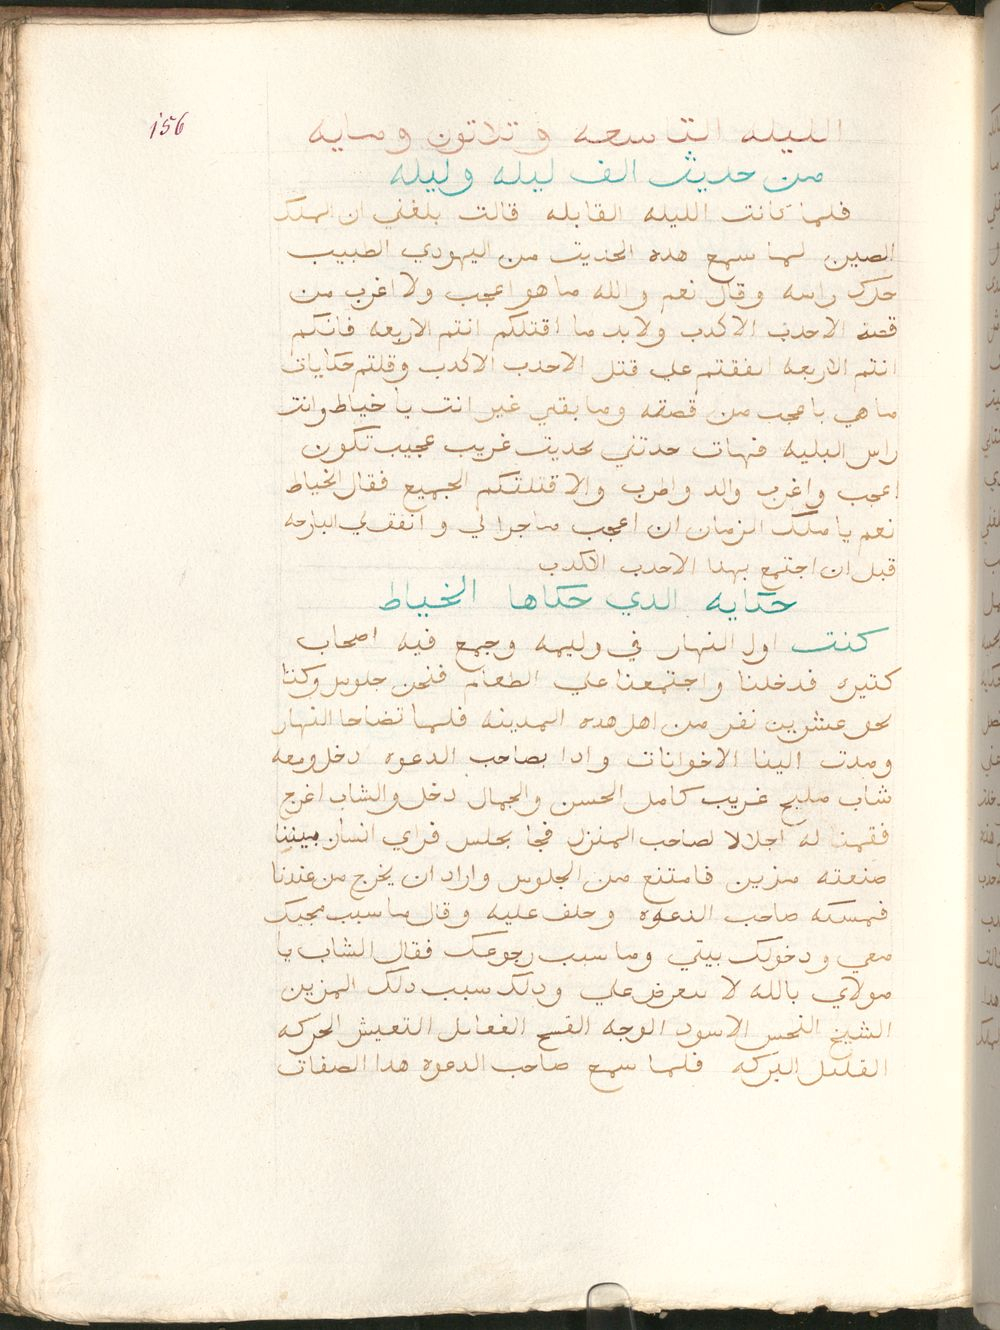 156
الليله التاسعه وتلاتون ومايه
من حديث الف ليله وليله
فلما كانت الليله القابله قالت بلغني ان الملك
الصين لما سمع هده الحديت من اليهودي الطبيب
حرك راسه وقال نعم والله ما هو اعجب ولا اغرب من
قصة الاحدب الاكدب ولا بد ما اقتلكم انتم الاربعه فانكم
انتم الاربعه اتفقتم علي قتل الاحدب الاكدب وقلتم حكايات
ما هي باعجب من قصته وما بقي غير انت يا خياط وانت
راس البليه فهات حدتني بحديت غريب عجيب تكون
اعجب واغرب والد واطرب والا قتلتكم الجميع فقال الخياط
نعم يا ملك الزمان ان اعجب ما جرا لي واتفق لي البارحه
قبل ان اجتمع بهدا الاحدب الاكدب
حكايه الدي حكاها الخياط
كنت اول النهار في وليمه وجمع فيه اصحاب
كتيره فدخلنا واجتمعنا علي الطعام فنحن جلوس وكنا
نحو عشرين نفر من اهل هده المدينه فلما تضاحا النهار
ومدت الينا الاخوانات وادا بصاحب الدعوه دخل ومعه
شاب مليح غريب كامل الحسن والجمال دخل والشاب اعرج
فقمنا له اجلالا لصاحب المنزل فجا يجلس فراي انسان بيننا
صنعته مزين فامتنع من الجلوس واراد ان يخرج من عندنا
فمسكه صاحب الدعوه وحلف عليه وقال ما سبب مجيك
معي ودخولك بيتي وما سبب رجوعك فقال الشاب يا
مولاي بالله لا تتعرض علي ودلك سبب دلك المزين
الشيخ النحس الاسود الوجه القبيح الفعايل التعيش الحركه
القليل البركه فلما سمع صاحب الدعوه هدا الصفات